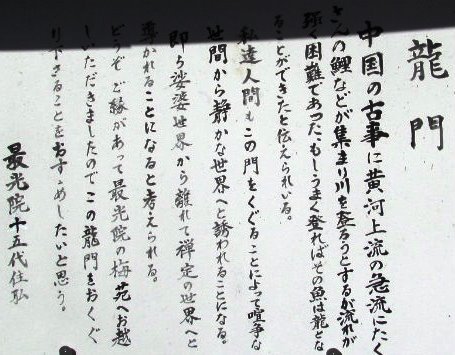 龍門
中国の古事に黄河上流の急流にたく
さんの鯉などが集まり川を登ろうとするが流れが
強く困難であった、もしうまく登ればその魚は龍とな
ることができたと伝えられいる。
私達人間もこの門をくぐることによって喧争な
世間から静かな世界へと誘われることになる。
即ち娑婆世界から離れて禅定の世界へと
導かれることになると考えられる。
どうぞご縁があって最光院の梅苑へお越
しいただきましたのでこの龍門をおくぐ
り下さることをおすゝめしたいと思う。
最光院十五代住弘